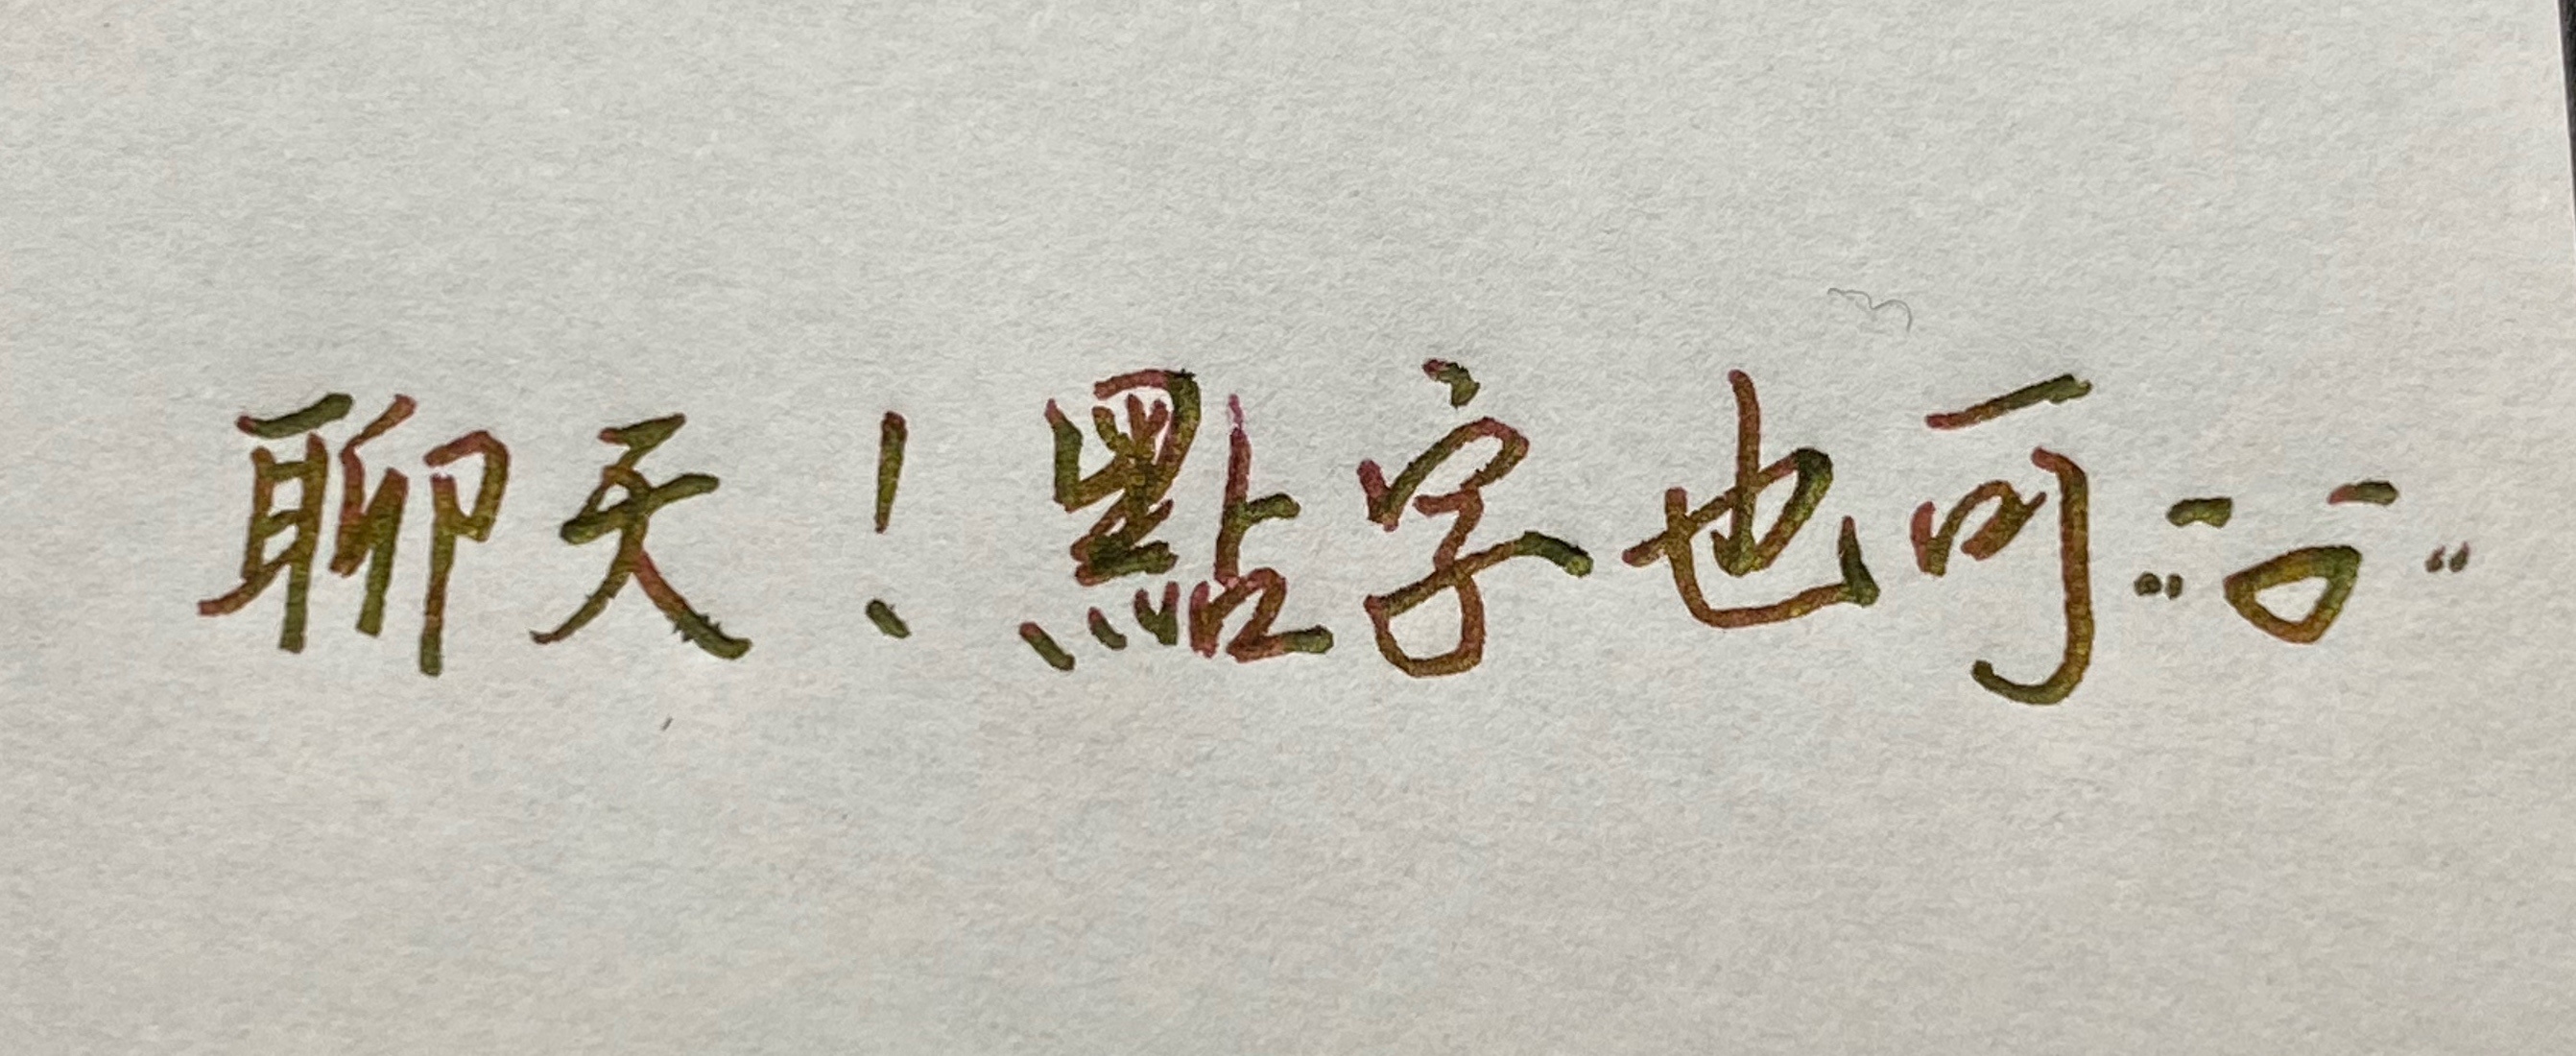 聊天！點字也可